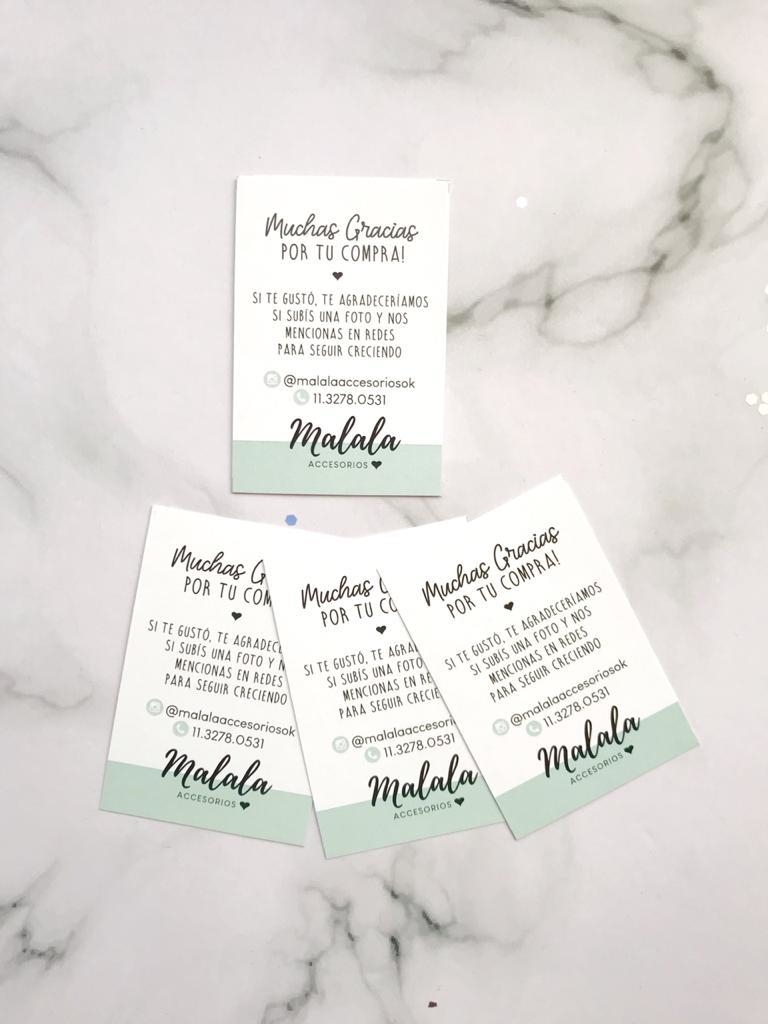 Muchas Gracias
POR TU COMPRA!
SI TE GUSTÓ, TE AGRADECERÍAMOS
SI SUBÍS UNA FOTO Y NOS
MENCIONAS EN REDES
PARA SEGUIR CRECIENDO
@malalaaccesoriosok
11.3278.0531
Malala
ACCESORIOS
Muchas G
POR TU COM
SI TE GUSTÓ, TE AGRADECE
SI SUBÍS UNA FOTO Y N
MENCIONAS EN REDES
PARA SEGUIR CRECIENDO
@malalaaccesoriosok
11.3278.0531
Malala
ACCESORIOS
Muchas G
POR TU CO
SI TE GUSTÓ, TE AGRA
SI SUBÍS UNA FOTO
MENCIONAS EN RE
PARA SEGUIR CRECIE
@malalaaccesori
11.3278.0531
Malala
ACCESORIOS
Muchas Gracias
POR TU COMPRA!
SI TE GUSTÓ, TE AGRADECERÍAMOS
SI SUBÍS UNA FOTO Y NOS
MENCIONAS EN REDES
PARA SEGUIR CRECIENDO
@malalaaccesoriosok
11.3278.0531
Malala
ACCESORIOS